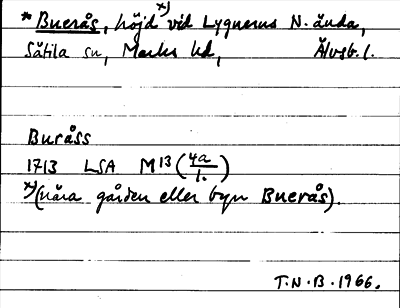 * Buerås, höjd *) vid Lygnerns N. ända,
Sätila sn, Marks hd, Älvsb. l.
Buråss
1713 LSA M13 (4a/1.)
*) (nära gården eller byn Buerås).
T.N.B. 1966.